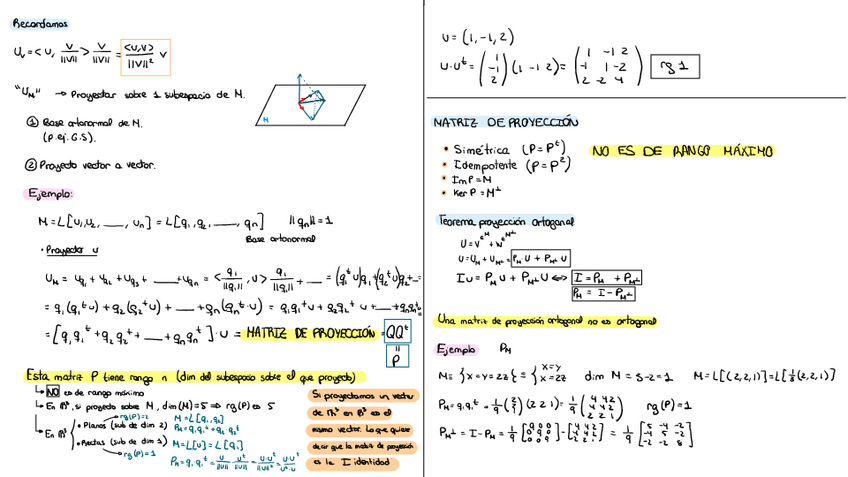 Recordamos
U_v = < U, V/||V|| > V/||V|| = <U,V>/||V||² V
"U_M" → Proyectar sobre 1 subespacio de M.
① Base ortonormal de M.
(p. ej. G.S).
② Proyecto vector a vector.
M
Ejemplo:
M = L[U₁, U₂, ___, Uₙ] = L[q₁, q₂, ___, qₙ] ||qₙ|| = 1
Base ortonormal
• Proyectar U
U_M = U_q₁ + U_q₂ + U_q₃ + ___ + U_qₙ = < q₁/||q₁||, U > q₁/||q₁|| + ___ = (q₁ᵗU)q₁ + (q₂ᵗU)q₂ + ...
= q₁(q₁ᵗU) + q₂(q₂ᵗU) + ___ + qₙ(qₙᵗ·U) = q₁q₁ᵗU + q₂q₂ᵗU + ___ + qₙqₙᵗU =
= [q₁q₁ᵗ + q₂q₂ᵗ + ___ + qₙqₙᵗ] · U = MATRIZ DE PROYECCIÓN = QQᵗ
=
P
Esta matriz P tiene rango n (dim del subespacio sobre el que proyecto)
↳ NO es de rango máximo
↳ En ℝ⁹, si proyecto sobre M, dim(M) = 5 ⇒ rg(P) es 5
↳ En ℝ³
• Planos (sub de dim 2) → rg(P)=2 M = L[q₁, q₂]
P_M = q₁q₁ᵗ + q₂q₂ᵗ
• Rectas (sub de dim 1) → rg(P)=1 M = L[U] = L[q₁]
P_M = q₁q₁ᵗ = U/||U|| · Uᵗ/||U|| = U·Uᵗ/||U||² = U·Uᵗ/Uᵗ·U
Si proyectamos un vector
de ℝ³ en ℝ³ es el
mismo vector. Lo que quiere
decir que la matriz de proyección
es la I identidad
U = (1, -1, 2)
U·Uᵗ = (1 -1 2) (1 -1 2) = (1 -1 2 -1 1 -2 2 -2 4) rg 1
MATRIZ DE PROYECCIÓN
• Simétrica (P = Pᵗ) NO ES DE RANGO MÁXIMO
• Idempotente (P = P²)
• Im P = M
• Ker P = M^⊥
Teorema proyección ortogonal
U = V^{∈M} + W^{∈M^⊥}
U = U_M + U_M⊥ = P_M U + P_M⊥ U
IU = P_M U + P_M⊥ U ⇔ I = P_M + P_M⊥
P_M = I - P_M⊥
Una matriz de proyección ortogonal no es ortogonal
Ejemplo P_M
M ≡ {X = Y = 2Z} = { X=Y X=2Z dim M = 3-2 = 1 M = L[(2,2,1)] = L[⅓(2,2,1)]
P_M = q₁q₁ᵗ = 1/9 (2 2 1) (2 2 1) = 1/9 (4 4 2 4 4 2 2 2 1) rg(P) = 1
P_M⊥ = I - P_M = 1/9 [9 0 0 0 9 0 0 0 9] - [4 4 2 4 4 2 2 2 1] = 1/9 [5 -4 -2 -4 5 -2 -2 -2 8]